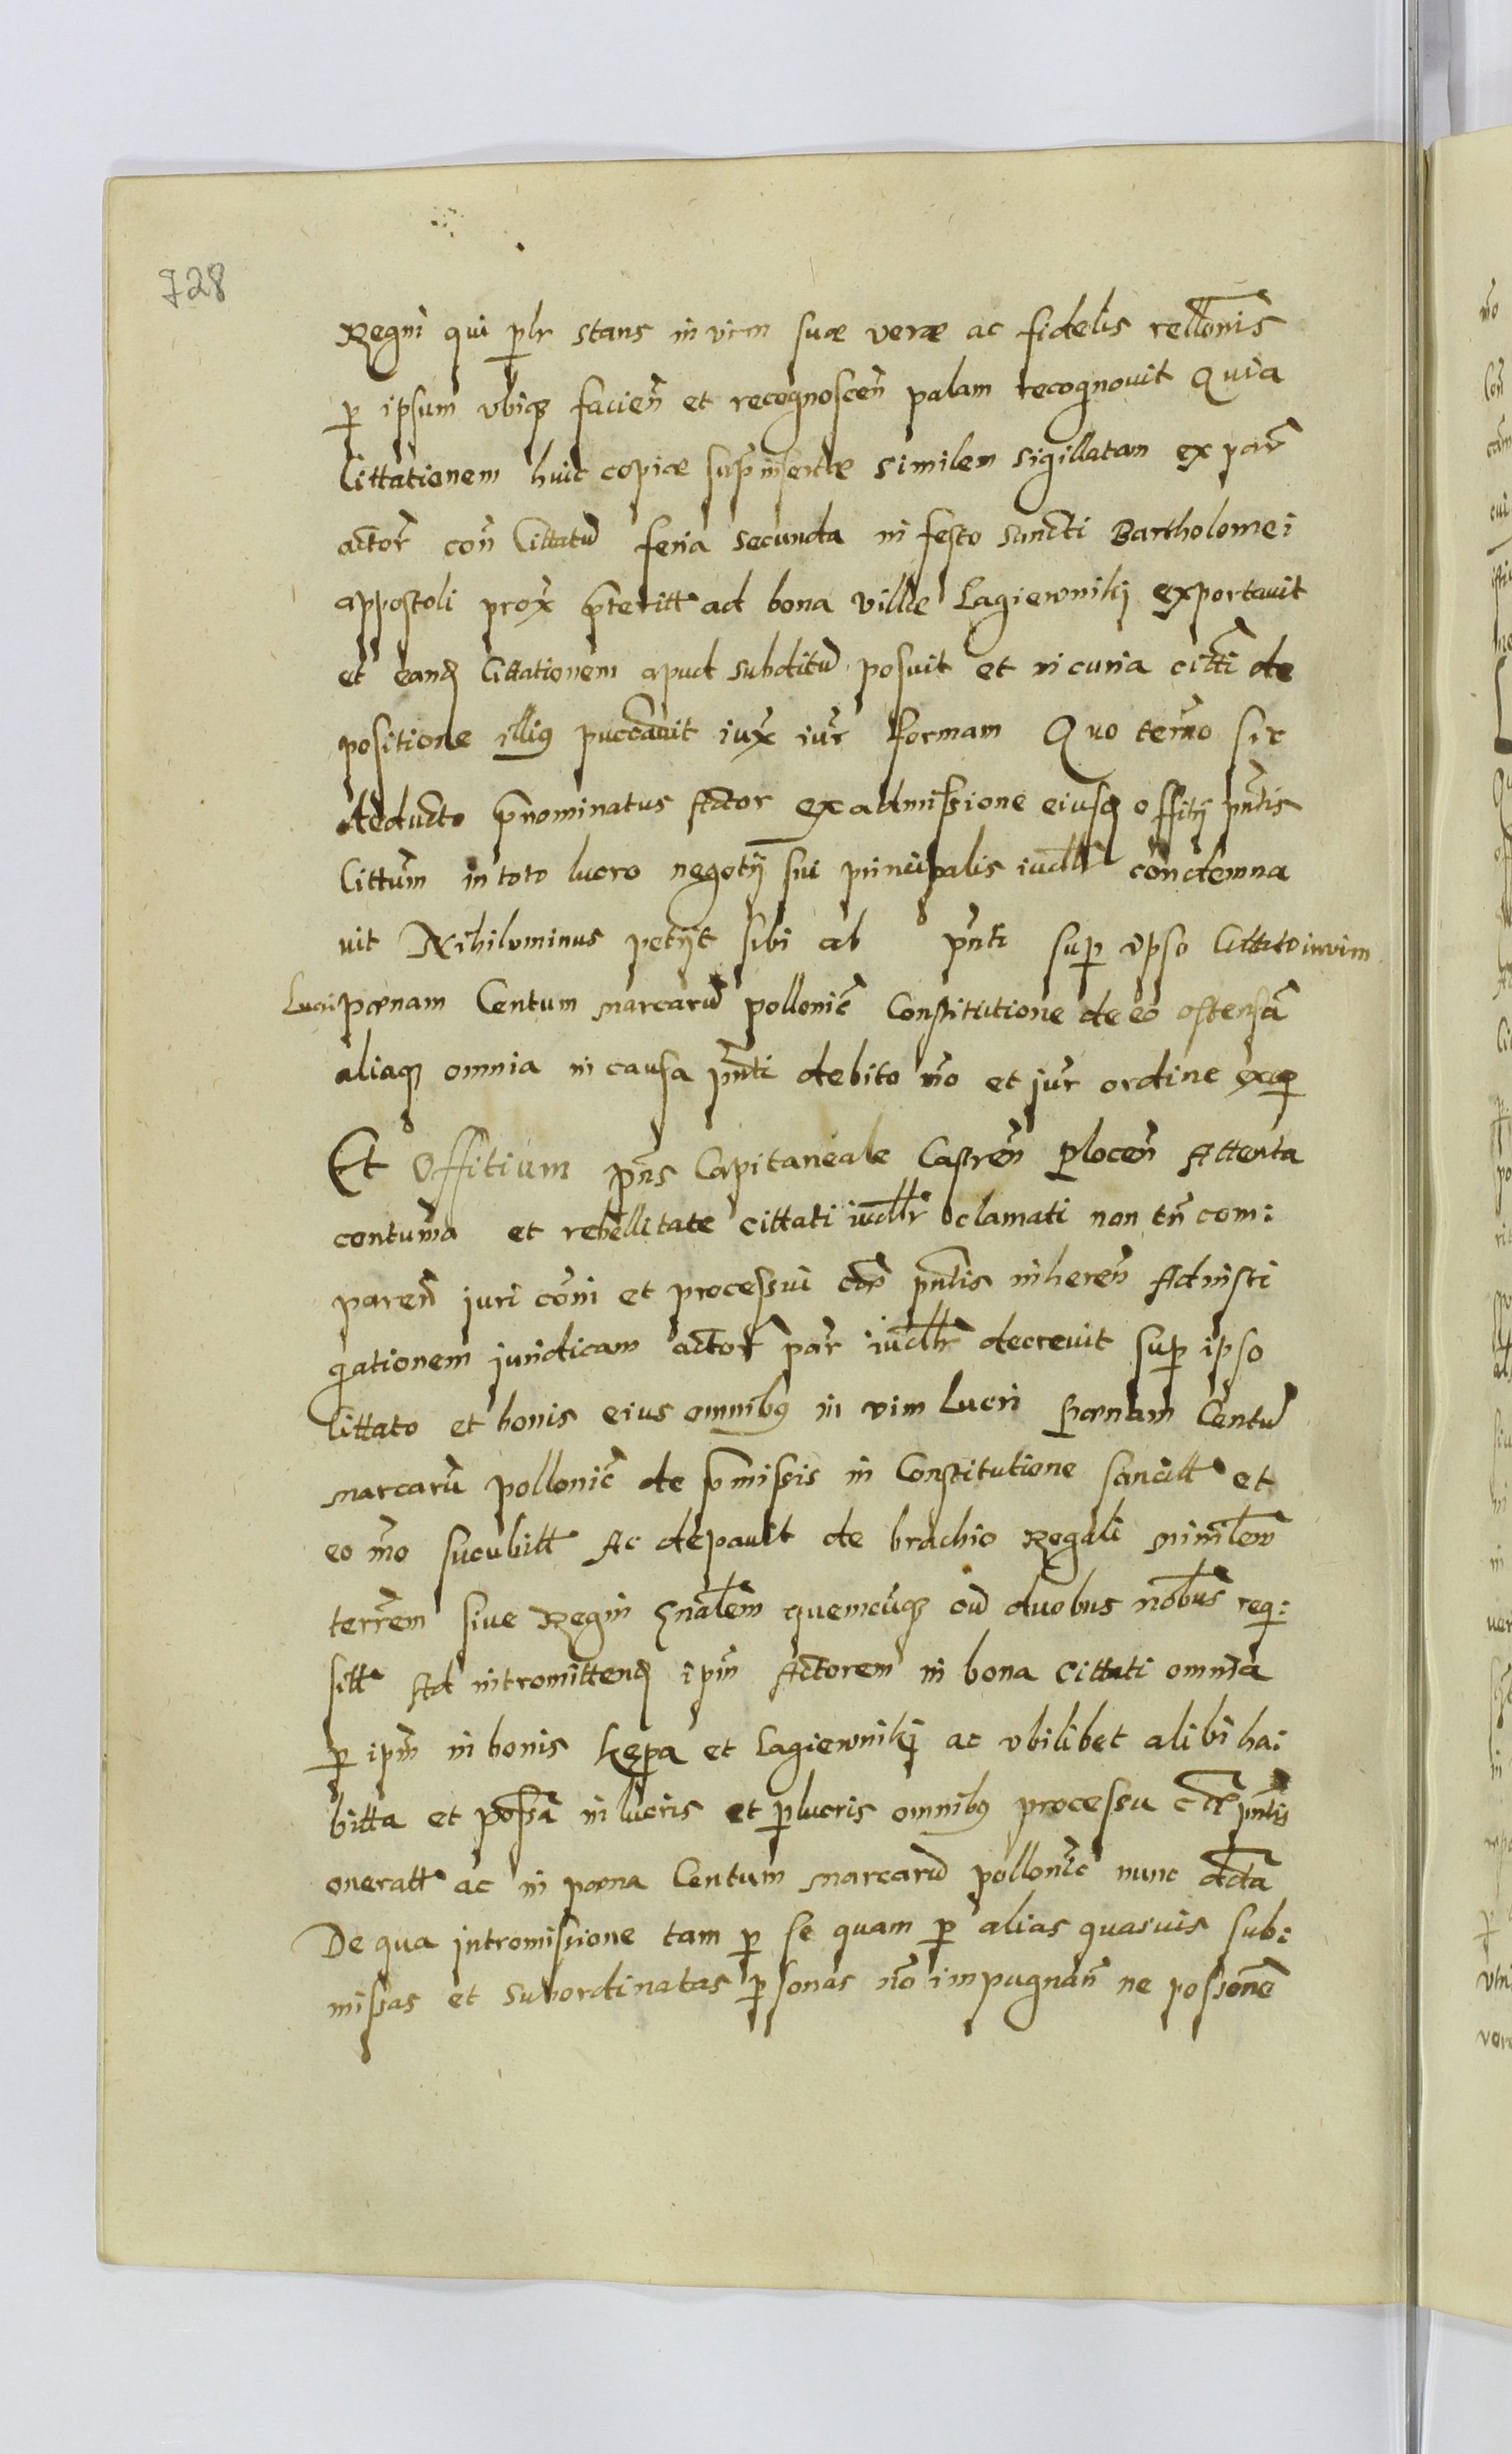 728
Regni qui p̱lr stans in vim suæ veræ ac fidelis rellonis̃
ꝑ ipsum vbiqꝫ facieñ et recognosceñ palam recognovit Quia
Cittationem huic copiæ supͥinsertæ similem sigillatam ex par̃
actor̃ coñ Cittatũ feria secunda in festo Sancti Bartholomei
appostoli prox̃ p̃teritt ad bona villæ Lagiewniky exportauit
et eandꝫ Cittationem apud subditũ posuit et in curia citti de
positione illiꝰ puccauit iux̃ iur̃ formam Quo termo sic
deducto p̃nominatus Actor ex admissione eiusdꝫ offitij pñtis
Cittum̃ in toto lucro negotij sui principalis iudlr̃ condemna
uit Nihilominus petijt sibi ab pñti suꝑ ipso Cittato in vim
Lucri pœnam Centum marcarũ pollonic̃ Constitutione de eo ostensã
aliaqꝫ omnia in causa pñti debito mõ et jur̃ ordine
Et Offitium pñs Capitaneale Castreñ Ploceñ Attenta
contuma et rebellitate cittati iudlr̃ clamati non tñ com:
pareñ juri cõni et processui cãæ pñtis inhereñ Ad insti
gationem juridicam actor̃ par̃ iudlr̃ decreuit suꝑ ipso
Cittato et bonis eius omnibꝰ in vim Lucri Pœnam Centũ
marcarũ pollonic̃ de p̃missis in Constitutione sancitt et
eo mõ sucubitt Ac depauit de brachio Regali ministlem̃
terrem̃ siue Regni gñalem̃ quemcũqꝫ cũ duobus nobus̃ req:
sitt Ad intromittendꝫ ipm̃ Actorem in bona Cittati omnia
ꝑ ipm̃ in bonis Kępa et Lagiewniky ac vbilibet alibi ha:
bitta et possã in lucris et ꝑlucris omnibꝰ processu cãæ pñtis
oneratt ac in pœna Centum marcarũ pollonic̃ nunc dcta
De qua intromissione tam ꝑ se quam ꝑ alias quasuis sub:
missas et subordinatas ꝑsonas nõ impugnañ ne possionẽ